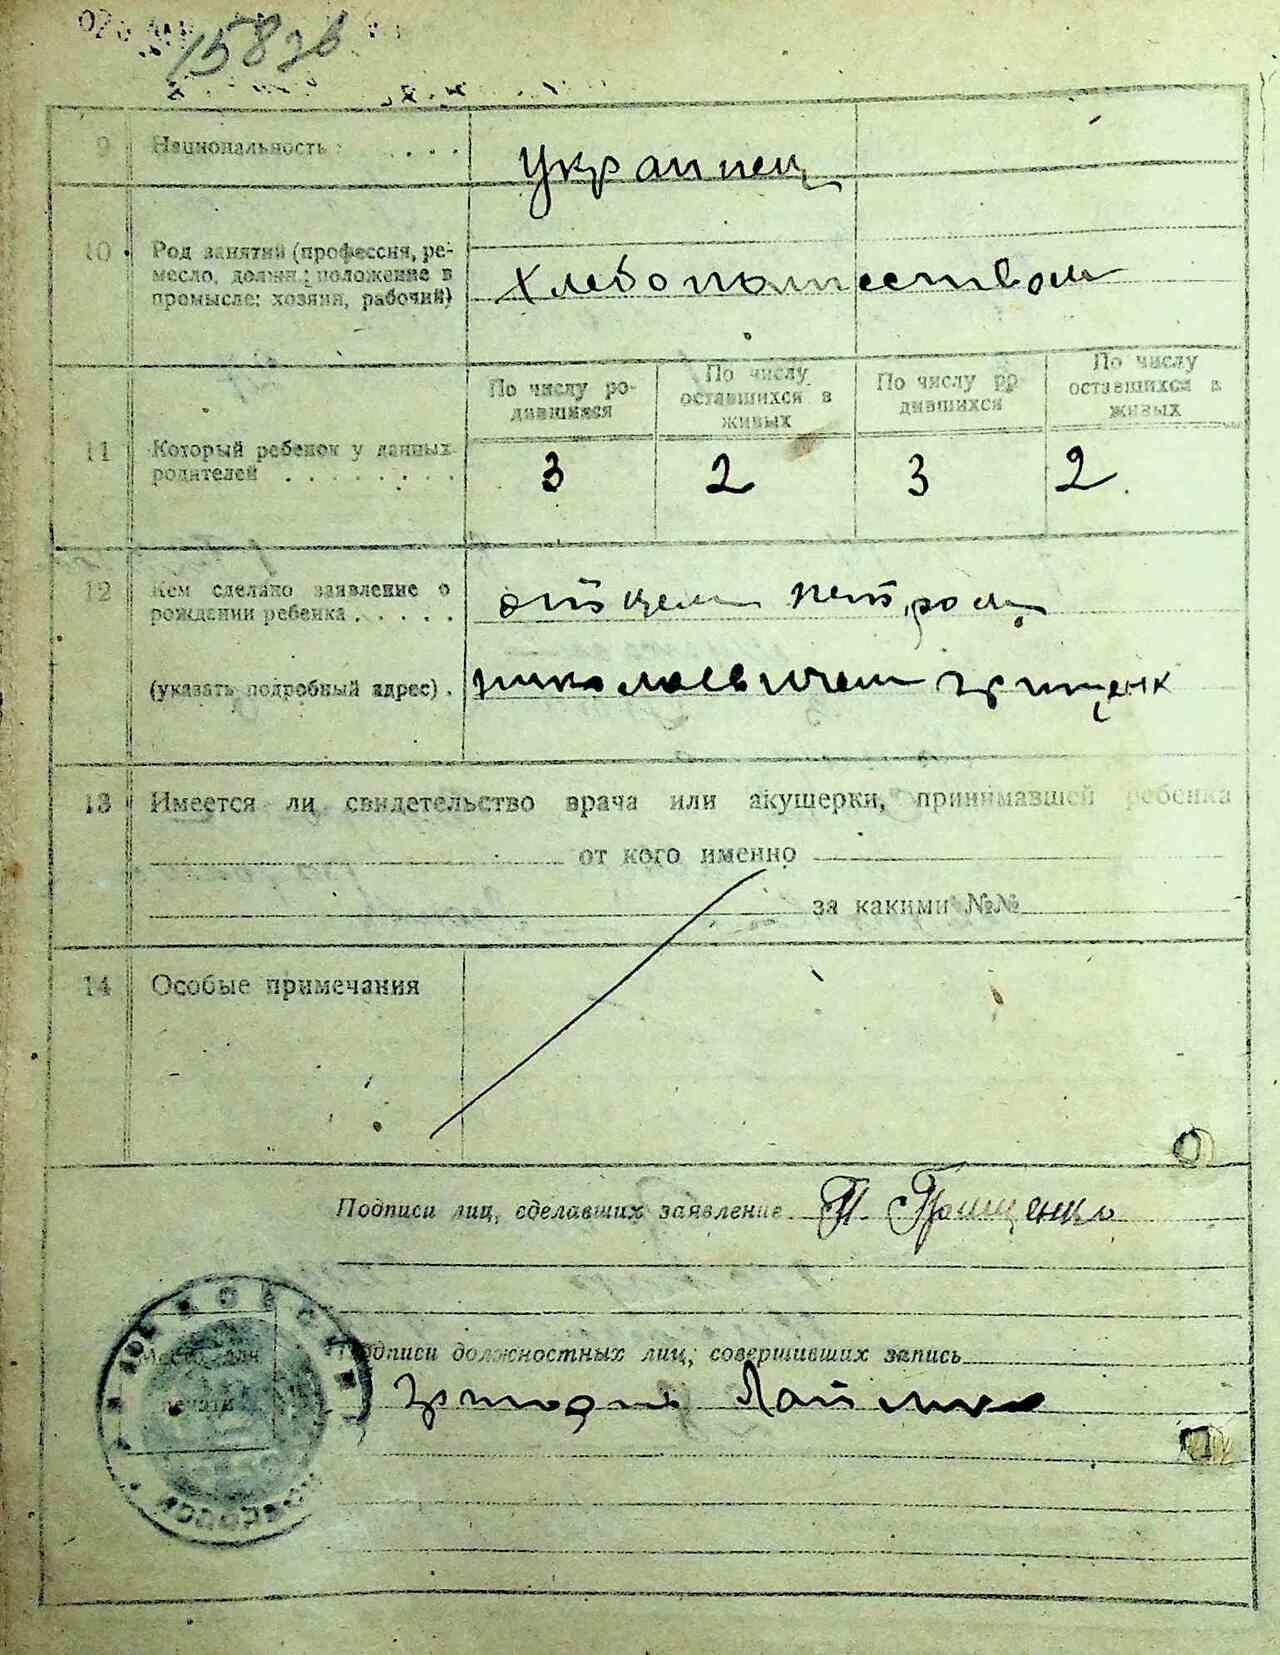 9 Национальность . . . .
украинец
10. Род занятий (профессия, ре-
месло, должн.; положение в
промысле: хозяин, рабочий)
хлебопашеством
По числу ро-
дившихся
По числу
оставшихся в
живых
По числу ро-
дившихся
По числу
оставшихся в
живых
11 Который ребенок у данных
родителей . . . . . . . .
3 2 3 2
12 Кем сделано заявление о
рождении ребенка . . . . .
отцем петром
(указать подробный адрес) .
николаевичем грищенк
13 Имеется ли свидетельство врача или акушерки, принимавшей ребенка
от кого именно
за какими №№
14 Особые примечания
Подписи лиц, сделавших заявление П. Грищенко
Место для
печати
Подписи должностных лиц, совершивших запись